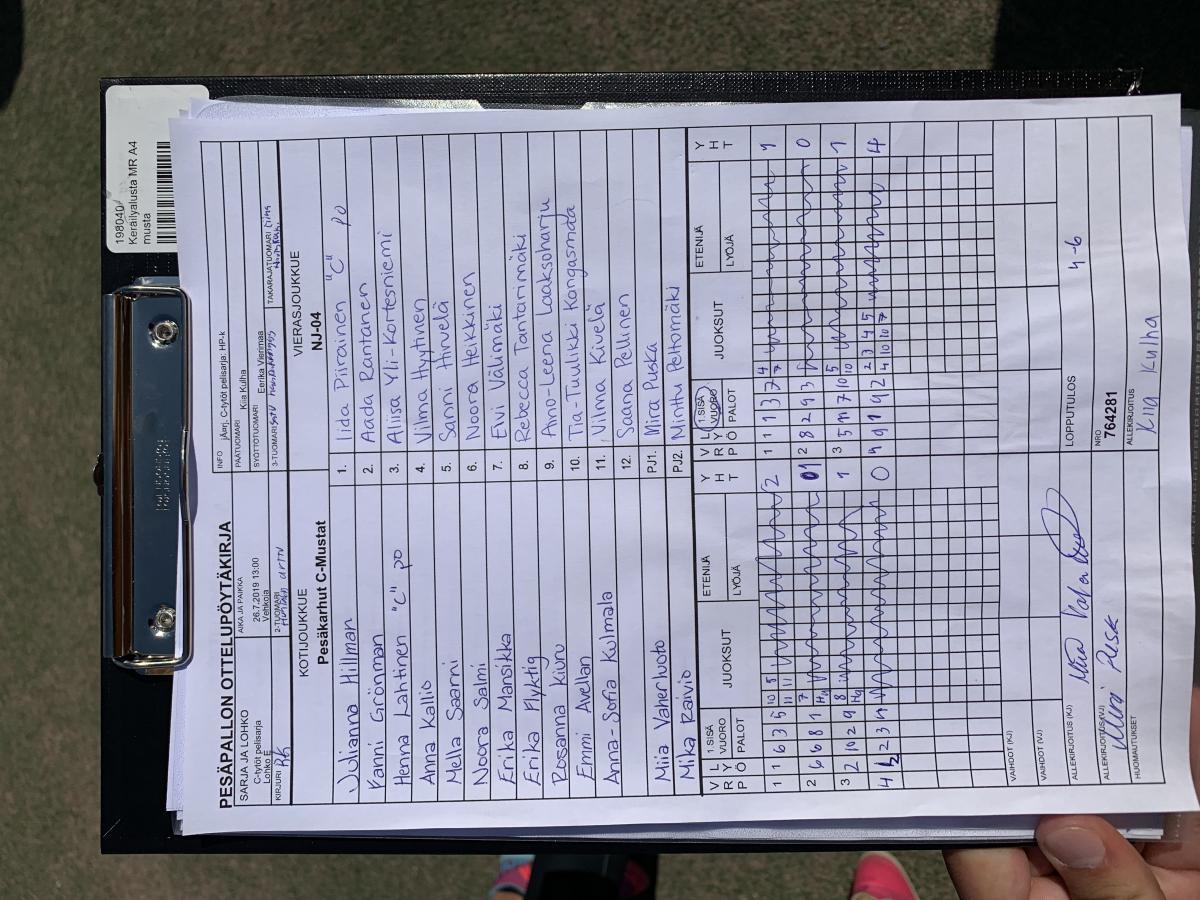 198040
Keräilyalusta MR A4
musta
PESÄPALLON OTTELUPÖYTÄKIRJA
SARJA JA LOHKO
C-tytöt pelisarja
Lohko E
AIKA JA PAIKKA
26.7.2019 13:00
Vehkoja
INFO jAarj. C-tytöt pelisarja: HP-k
PÄÄTUOMARI Kiia Kulha
SYÖTTÖTUOMARI Eerika Vierimaa
KIRJURI
2-TUOMARI
3-TUOMARI
TAKARAJATUOMARI
KOTIJOUKKUE
Pesäkarhut C-Mustat
VIERASJOUKKUE
NJ-04
Julianna Hillman 1. Iida Piirainen "C" po
Vanni Grönman 2. Aada Rantanen
Henna Lahtinen "C" po 3. Aliisa Yli-Kortesniemi
Anna Kallio 4. Vilma Hyytinen
Mella Saarni 5. Sanni Hirvelä
Noora Salmi 6. Noora Heikkinen
Erika Mansikka 7. Evi Välimäki
Erika Flyktig 8. Rebecca Tantarimäki
Rosanna Kiuru 9. Aino-Leena Laaksoharju
Emmi Avellan 10. Tia-Tuulikki Kangasmaa
Anna-Sofia Kulmala 11. Vilma Kivelä
12. Saana Pellinen
Miia Vaherluoto PJ1. Mira Puska
Mika Raivio PJ2. Minttu Peltomäki
V R L Y Ö P 1.SISÄ VUORO PALOT JUOKSUT ETENIJÄ LYÖJÄ Y H T V R L Y Ö P 1.SISÄ VUORO PALOT JUOKSUT ETENIJÄ LYÖJÄ Y H T
1 1 6 3 5 10 11 5 11 2 1 1 1 3 7 4 7 1
2 6 6 8 1 7 H4 1 2 8 2 9 3 0
3 2 10 2 9 8 H9 1 3 5 11 7 10 5 10 1
4 2 2 3 4 0 4 9 1 9 2 2 4 3 10 4 10 5 7 4
VAIHDOT (KJ)
VAIHDOT (VJ)
ALLEKIRJOITUS (KJ)
LOPPUTULOS 4-6
ALLEKIRJOITUS (VJ)
NRO
764281
HUOMAUTUKSET
ALLEKIRJOITUS
Kiia Kulha